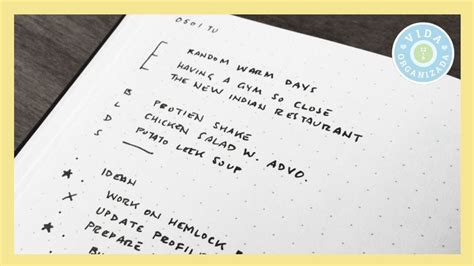 VIDA
ORGANIZADA
0501 TU
RANDOM WARM DAYS
HAVING A GYM SO CLOSE
THE NEW INDIAN RESTAURANT
B PROTIEN SHAKE
L CHICKEN SALAD W. ADVO.
D POTATO LEEK SOUP
S
IDEAN
WORK ON HEMLOCK
UPDATE PROFIL
PREPARE